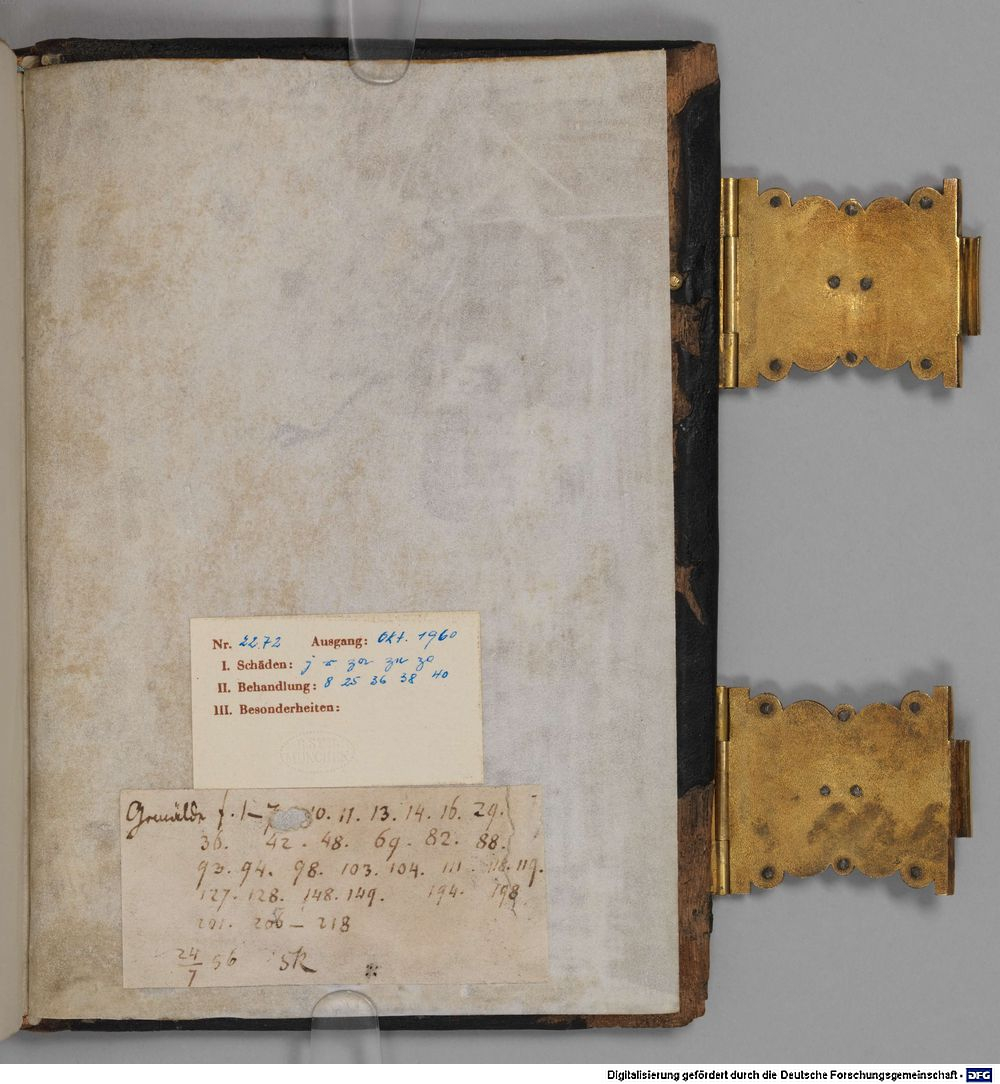 Nr. 2272 Ausgang: Okt. 1960
I. Schäden: j
II. Behandlung: 8 25 36 38 40
III. Besonderheiten:
Gemälde f. 1–7 10. 11. 13. 14. 16. 29.
36. 42. 48. 69. 82. 88.
93. 94. 98. 103. 104. 111. 118. 119.
127. 128. 148. 149. 194. 198.
201. 206 – 218
24/7 56 SK
Digitalisierung gefördert durch die Deutsche Forschungsgemeinschaft - DFG